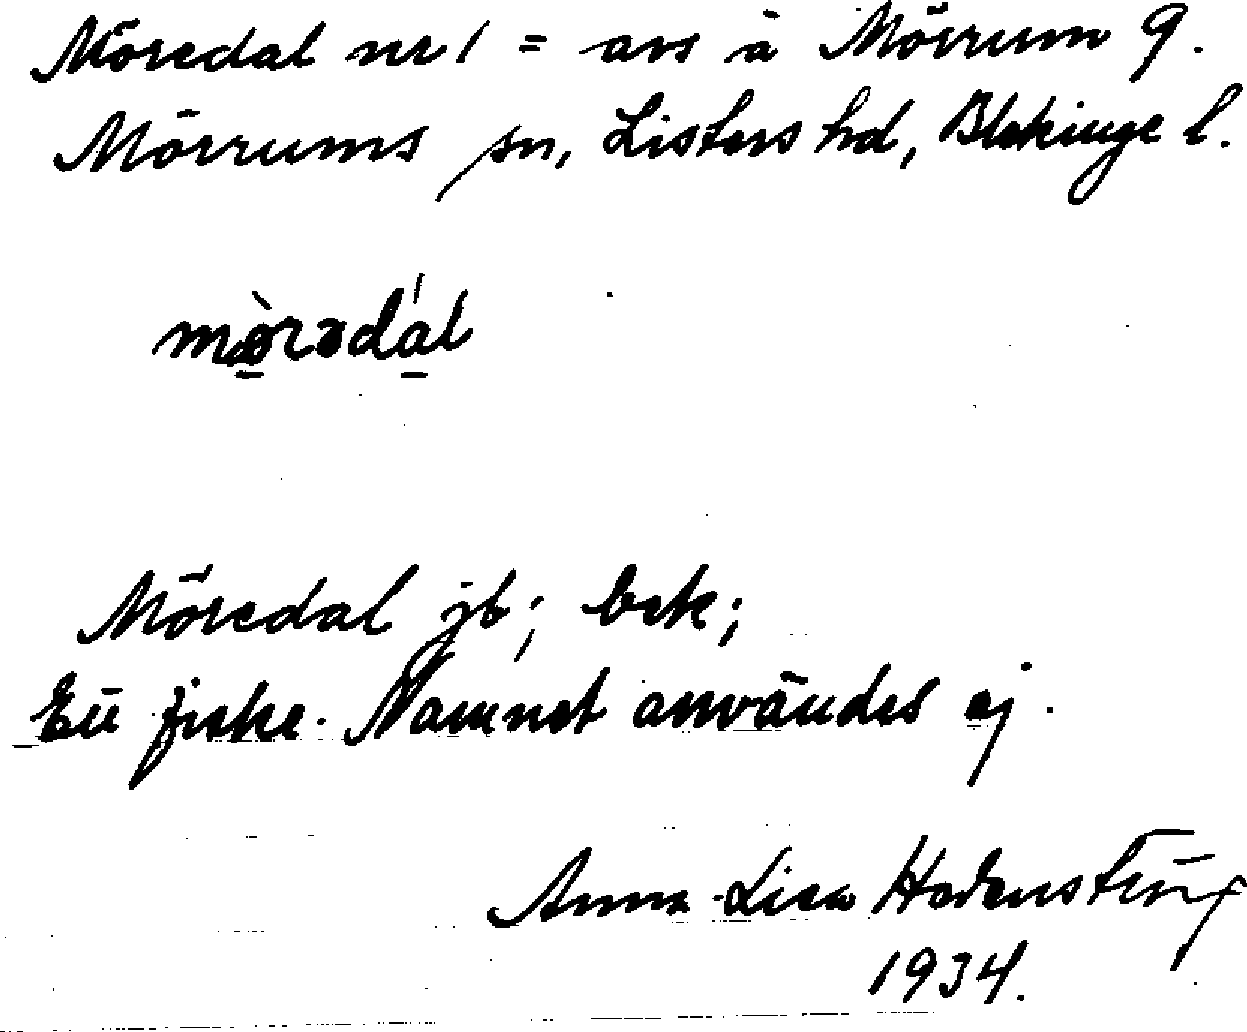 Möredal nr 1 = avs å Mörrum 9.
Mörrums sn, Listers hd, Blekinge l.
mö̀rədál
Möredal jb; bek;
Ett fiske. Namnet användes ej.
Anna-Lisa
1934.